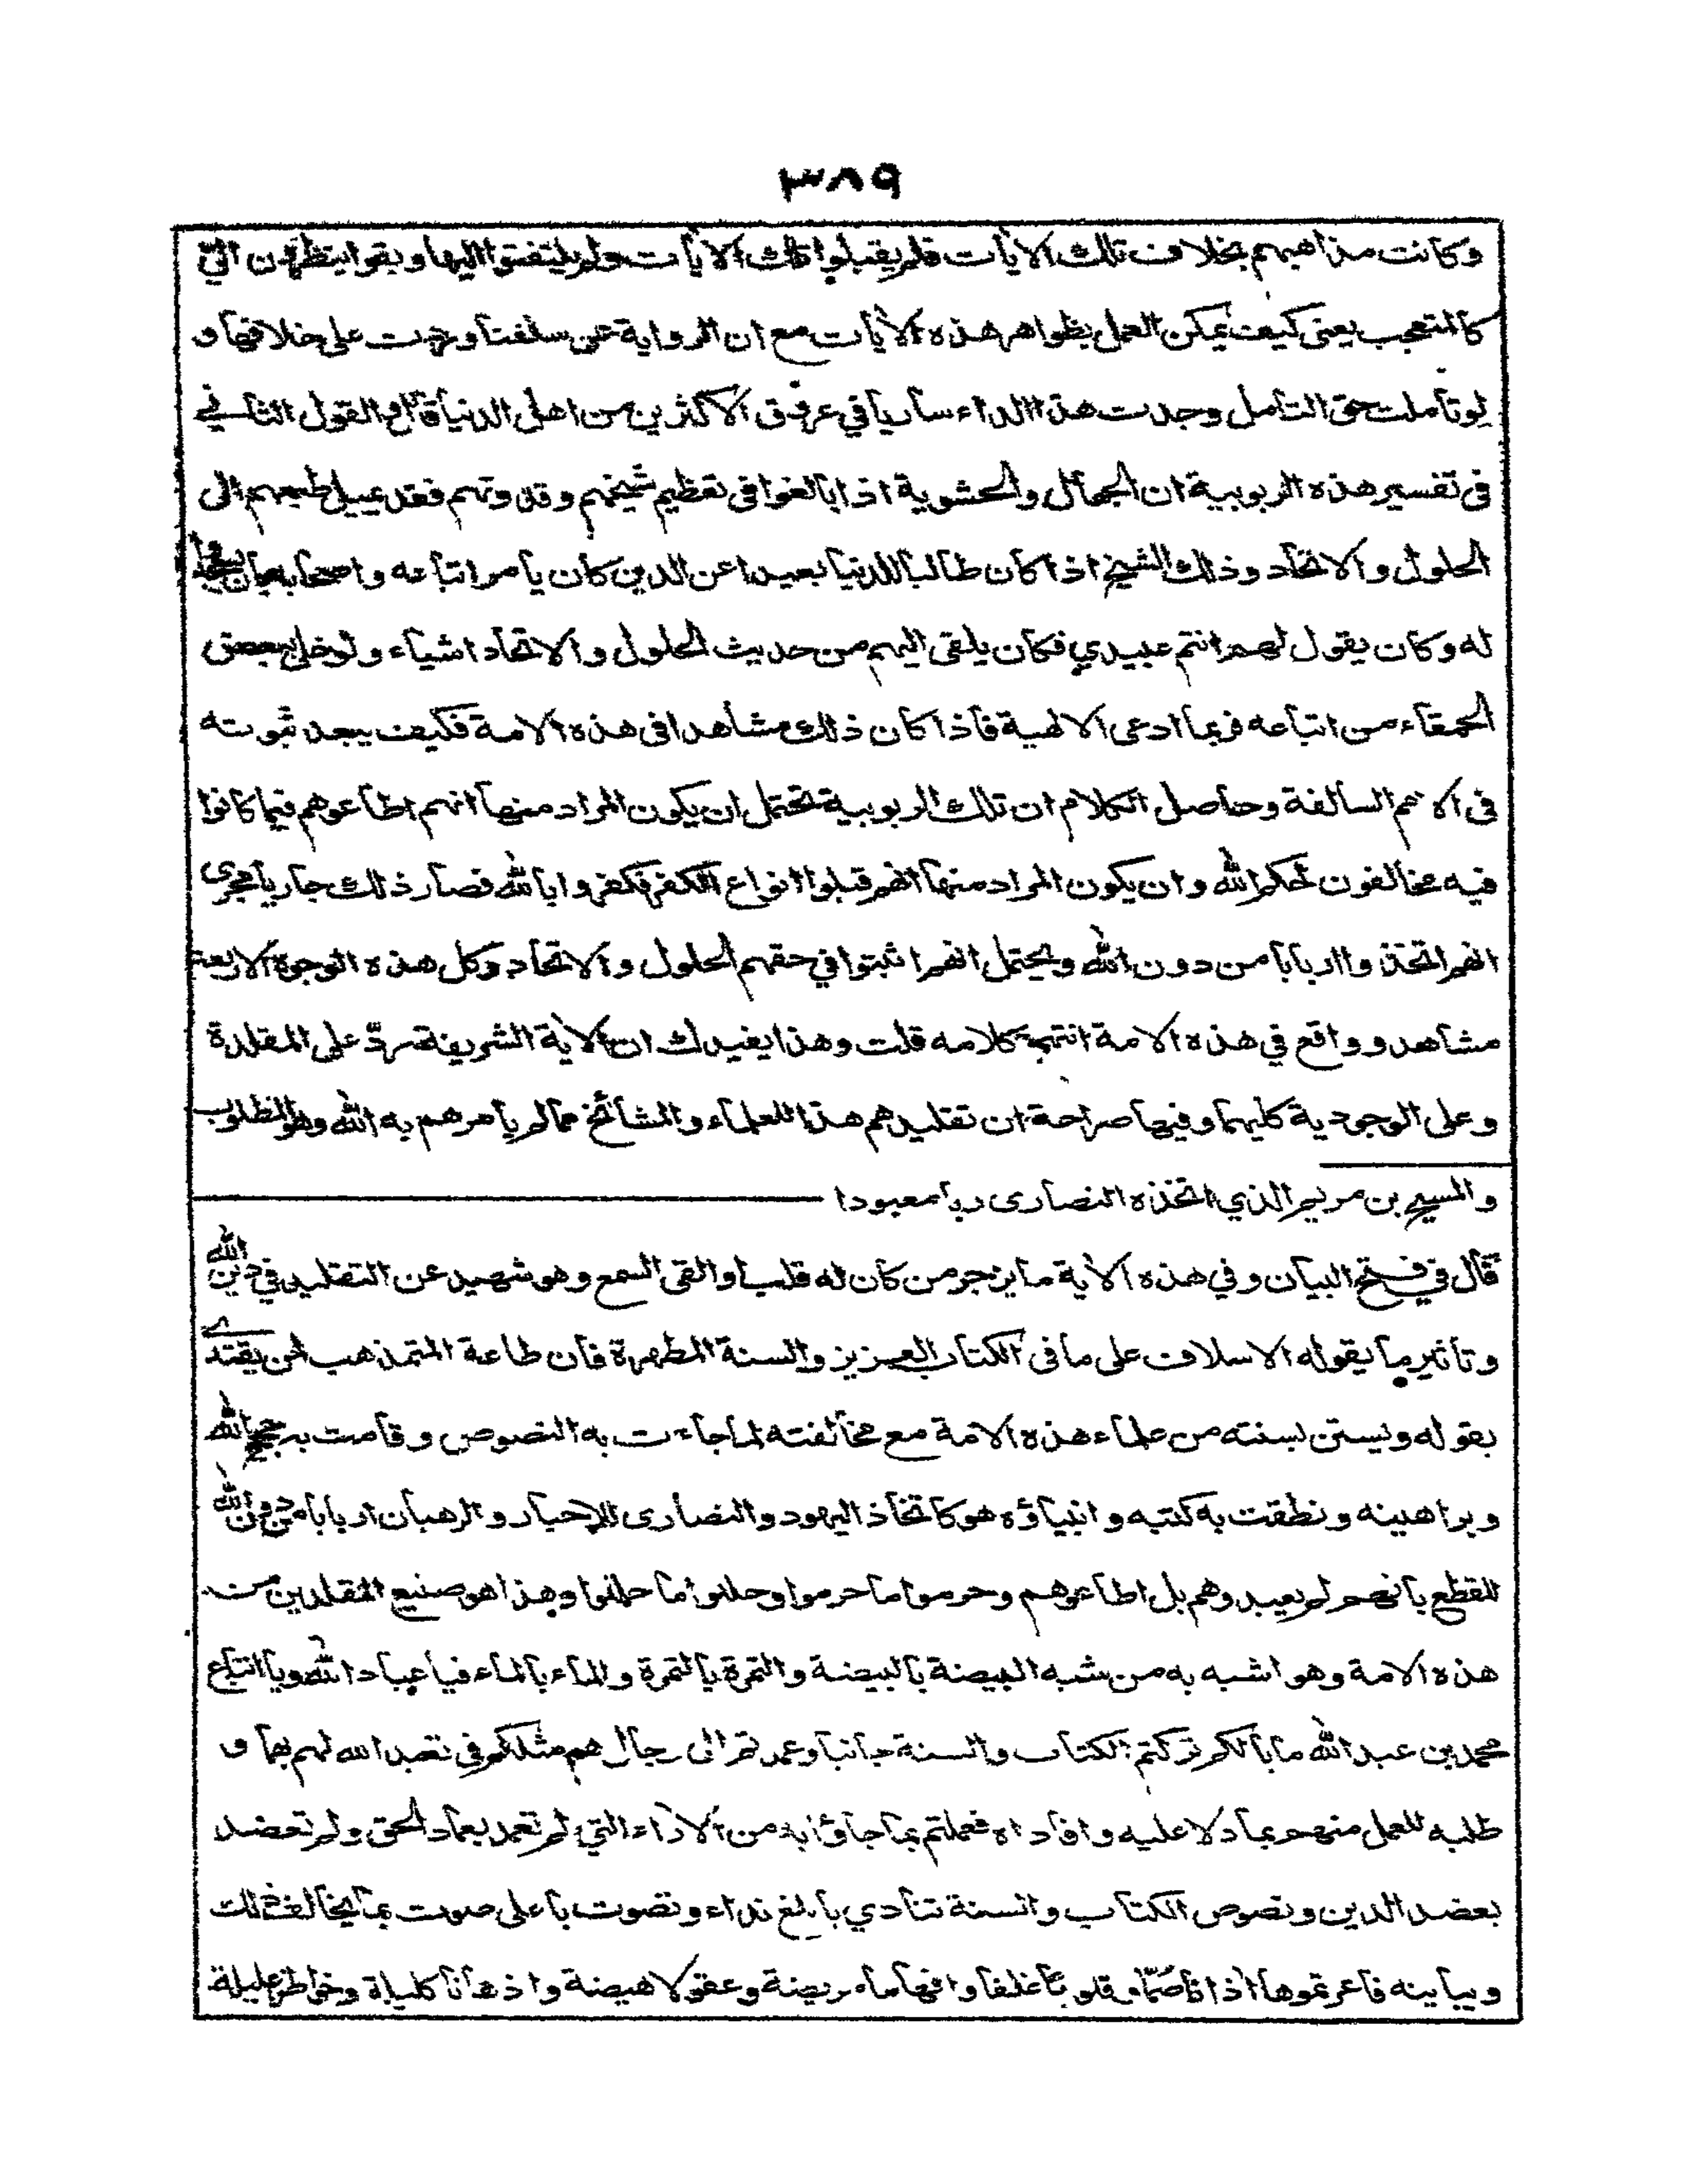 ٣٨٩
وكانت مذاهبهم بخلاف تلك الايات فلم يقبلوا تلك الايات ولم يلتفتوا اليها وبقوا ينظرون الي
كالمتعجب يعني كيف يمكن العمل بظواهر هذه الايات مع ان الرواية عن سلفنا وردت على خلافها و
لو تأملت حق التامل وجدت هذا الداء ساريا في عروق الاكثرين من اهل الدنيا قال والقول الثاني
في تفسير هذه الربوبية ان الجهال والحشوية اذا بالغوا في تعظيم شيخهم وقدوتهم فقد يميل طبعهم الى
الحلول والاتحاد وذلك الشيخ اذا كان طالبا للدنيا بعيدا عن الدين كان يامر اتباعه واصحابه بان يسجدوا
له وكان يقول لهم انتم عبيدي فكان يلقي اليهم من حديث الحلول والاتحاد اشياء ولو خلى ببعض
الحمقاء من اتباعه فربما ادعى الالهية فاذا كان ذلك مشاهدا في هذه الامة فكيف يبعد ثبوته
في الامم السالفة وحاصل الكلام ان تلك الربوبية تحتمل ان يكون المراد منها انهم اطاعوهم فيما كانوا
فيه مخالفون لحكم الله وان يكون المراد منها انهم قبلوا انواع الكفر فكفروا بالله فصار ذلك جاريا مجرى
انهم اتخذوا اربابا من دون الله ويحتمل انهم اثبتوا في حقهم الحلول والاتحاد وكل هذه الوجوه الاربعة
مشاهد وواقع في هذه الامة انتهى كلامه قلت وهذا يفيدك ان الاية الشريفة رد على المقلدة
وعلى الوجودية كليهما وفيها صراحة ان تقليدهم هذا للعلماء والمشائخ مما لم يأمرهم به الله وهو المطلوب
والمسيح بن مريم الذي اتخذه النصارى ربا معبودا
قال في فتح البيان وفي هذه الاية ما يزجر من كان له قلب او القى السمع وهو شهيد عن التقليد في دين الله
وتأثير ما يقوله الاسلاف على ما في الكتاب العزيز والسنة المطهرة فان طاعة المتمذهب لمن يقتدي
بقوله ويستن بسنته من علماء هذه الامة مع مخالفته لما جاءت به النصوص وقامت به حجج الله
وبراهينه ونطقت به كتبه وانبياؤه هو كاتخاذ اليهود والنصارى للاحبار والرهبان اربابا من دون الله
للقطع بانهم لم يعبدوهم بل اطاعوهم وحرموا ما حرموا وحللوا ما حللوا وهذا هو صنيع المقلدين من
هذه الامة وهو اشبه به من شبه البيضة بالبيضة والتمرة بالتمرة والماء بالماء فيا عباد الله ويا اتباع
محمد بن عبد الله ما بالكم تركتم الكتاب والسنة جانبا وعمدتم الى رجال هم مثلكم في تعبد الله لهم بهما و
طلبه للعمل منهم بما دلا عليه وافاداه فعملتم بما جاؤا به من الاراء التي لم تعمد بعماد الحق ولم تعضد
بعضد الدين ونصوص الكتاب والسنة تنادي بابلغ نداء وتصوت باعلى صوت بما يخالف ذلك
ويباينه فاعرتموها اذانا صما وقلوبا غلفا وافهاما مريضة وعقولا هيضة واذهانا كليلة وخواطر عليلة